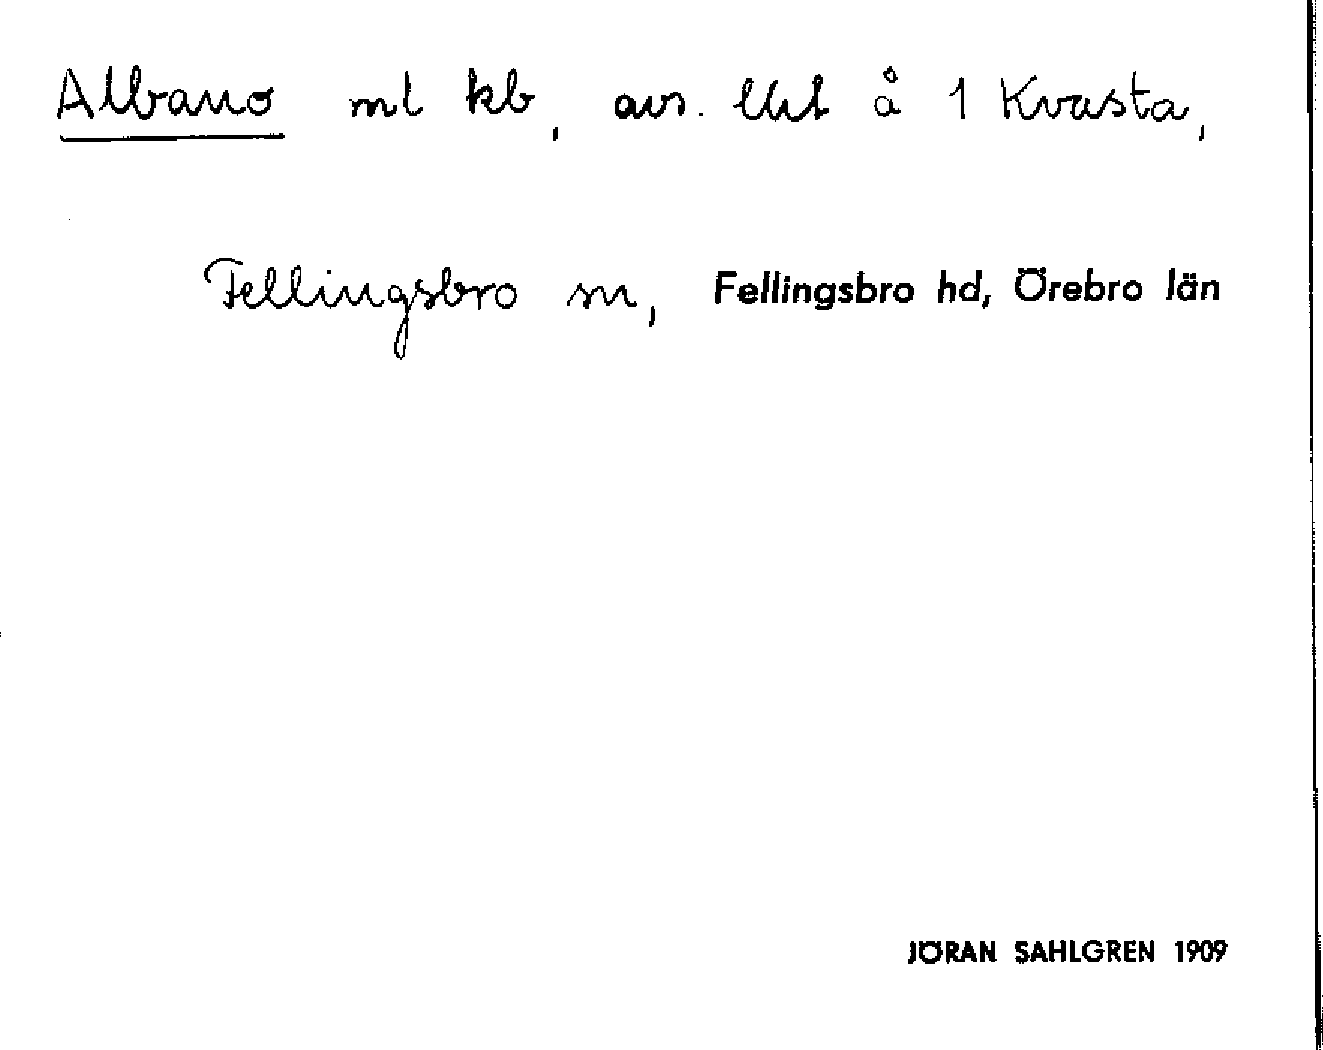 Albano ml kb, avs. lht å 1 Kvasta,
Fellingsbro sn, Fellingsbro hd, Örebro län
JÖRAN SAHLGREN 1909